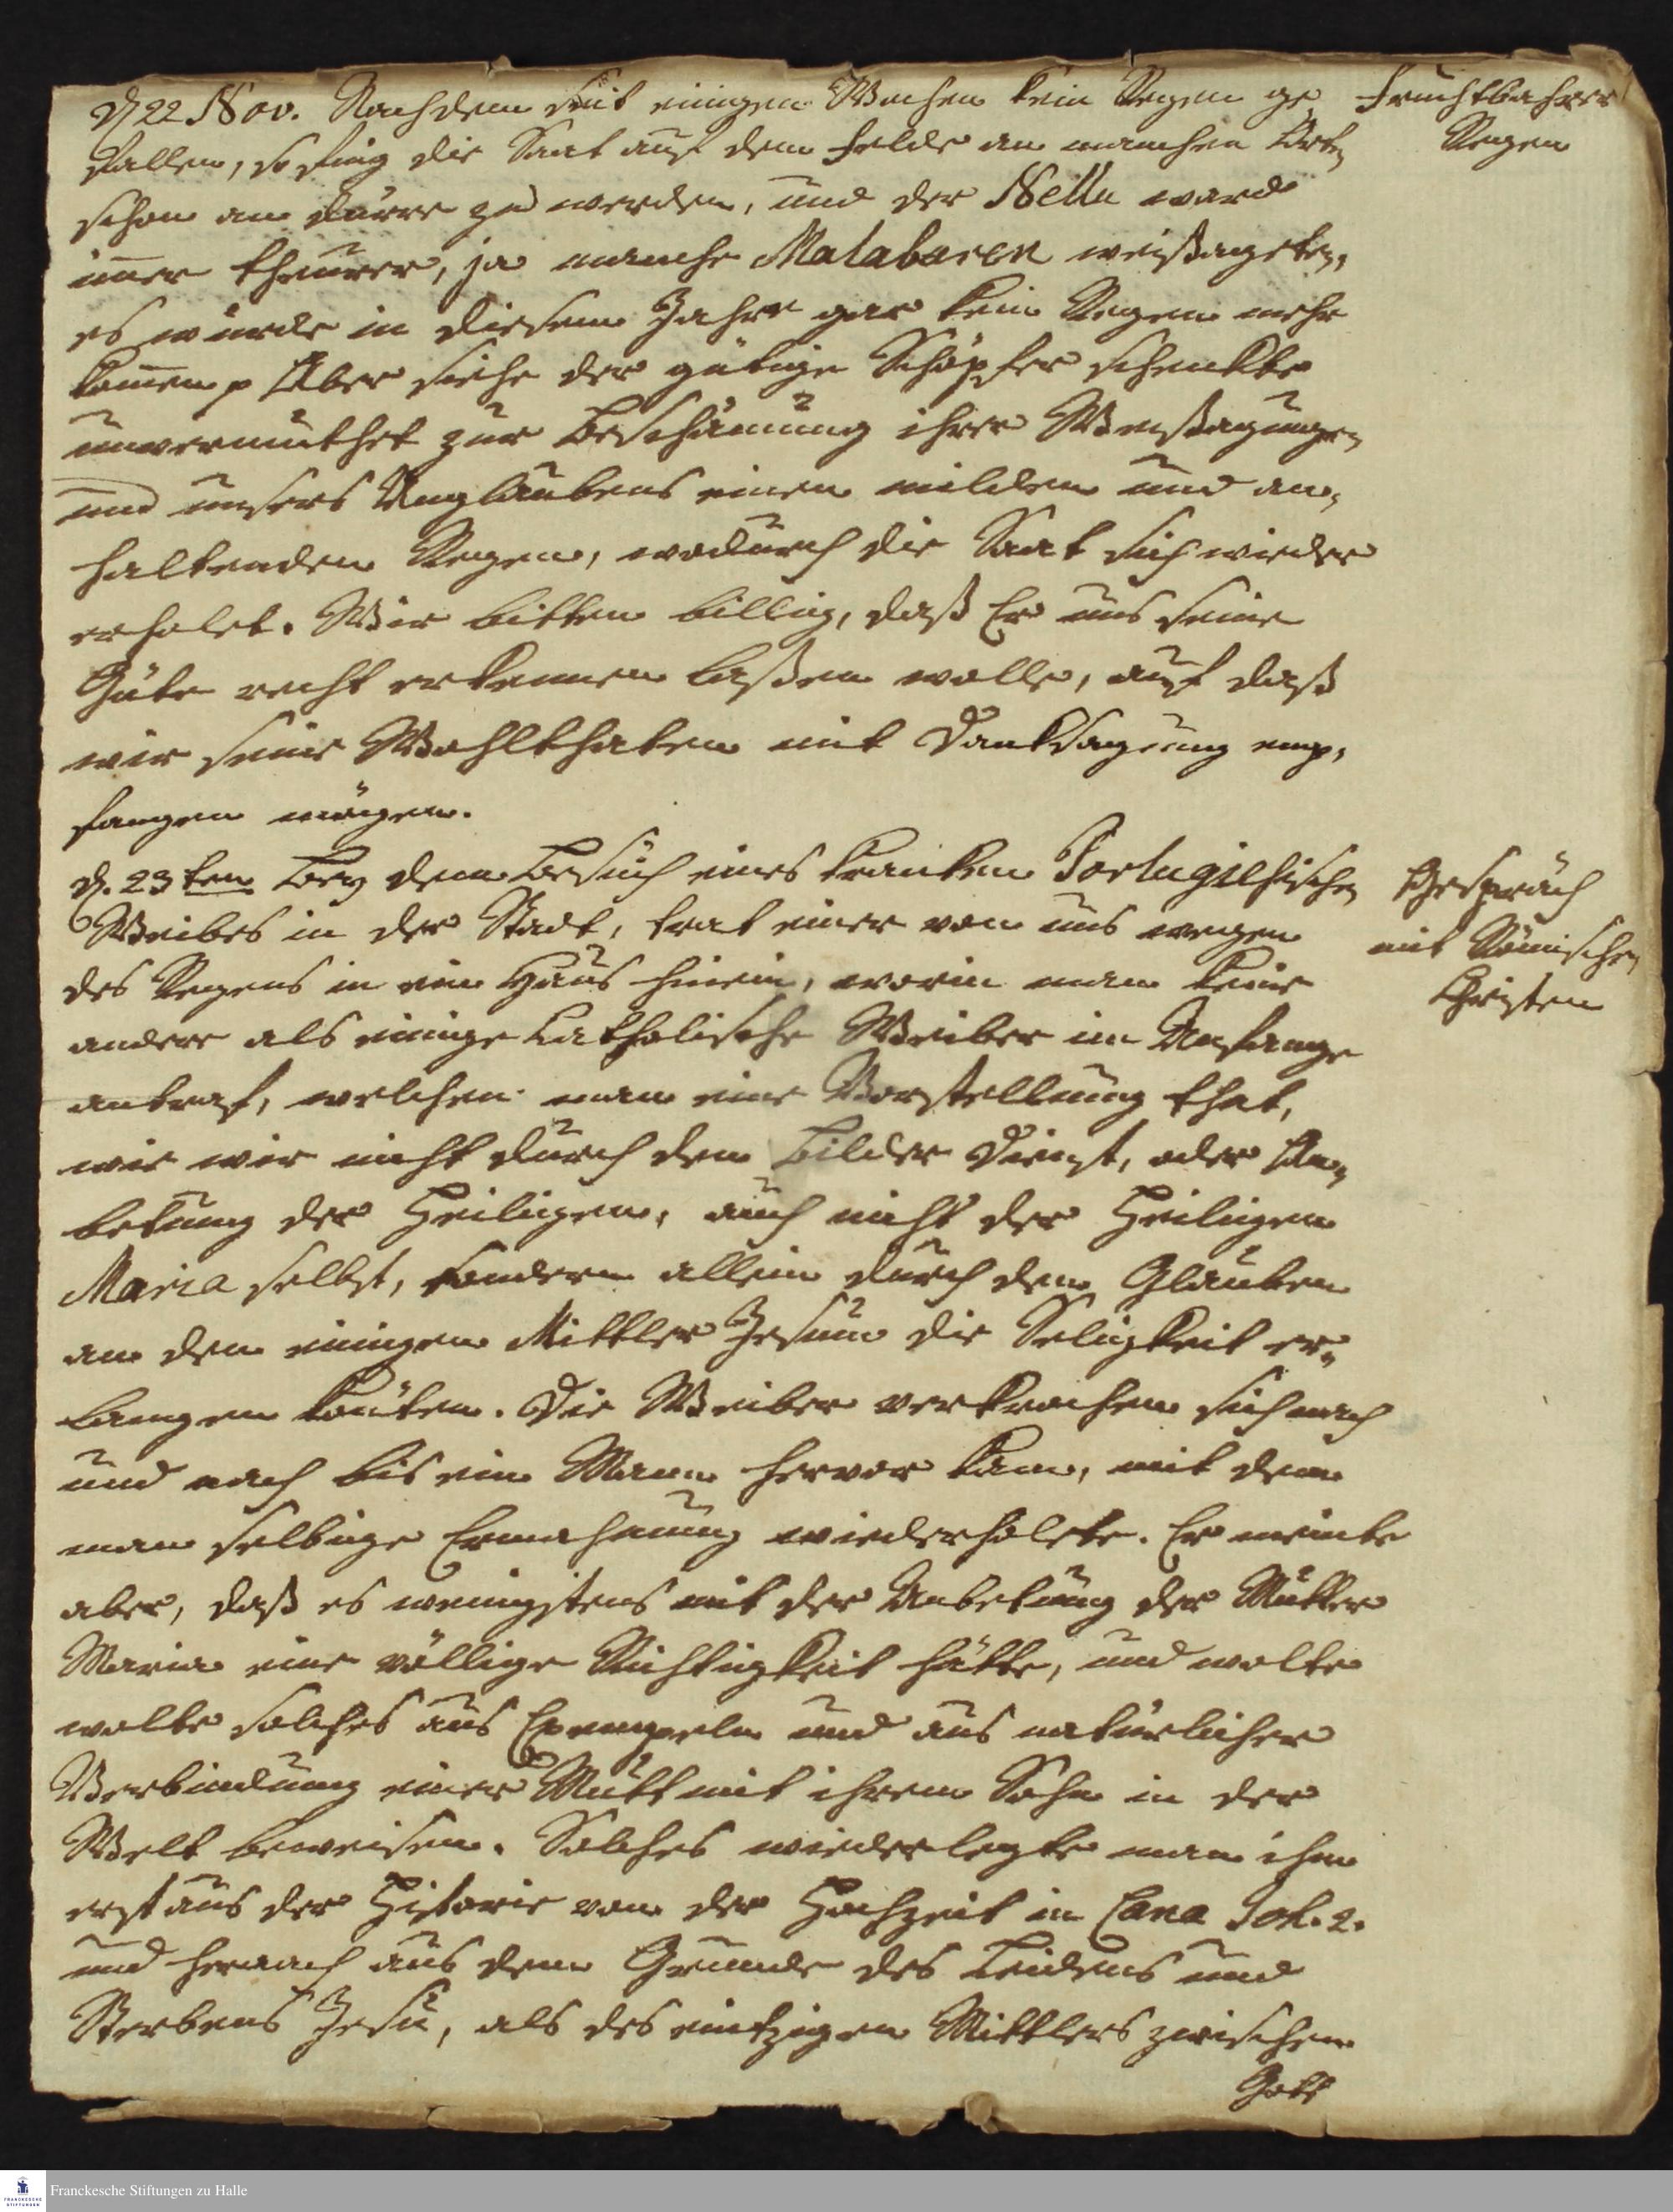 d 22 Nov. Nachdem seit einigen Wochen kein Regen ge
fallen, so fing die Saat auf dem Felde an manchen Orten
schon an dürre zu werden, und der Nellu ward
im̄er theurer, ja manche Malabaren weißageten,
es würde in diesem Jahre gar kein Regen mehr
kom̄en p Aber siehe der gütige Schöpfer schenkte
unvermuthet zur Beschämung ihrer Weißagungen
und unsers Unglaubens einen milden und an-
haltenden Regen, wodurch die Saat sich wieder
erholet. Wir bitten billig, daß Er uns seine
Güte recht erkennen laßen wolle, auf daß
wir seine Wohlthaten mit Danksagung emp-
fangen mögen.
Fruchtbahrer
Regen
d. 23ten Bey dem Besuch eines kranken Portugiesischen
Weibes in der Stadt, trat einer von uns wegen
des Regens in ein Haus hinein, worin man keine
andere als einige Catholische Weiber im Anfange
antraf, welchen man eine Vorstellung that,
wie wir nicht durch den Bilder Dienst, oder An-
betung der Heiligen, auch nicht der Heiligen
Maria selbst, sondern allein durch den Glauben
an den einigen Mittler Jesum die Seligkeit er-
langen könten. Die Weiber verkrochen sich nach
und nach bis ein Mann hervor kam, mit dem
man selbige Ermahnung wiederholete. Er meinte
aber, daß es wenigstens mit der Anbetung der Mutter
Maria eine völlige Richtigkeit hätte, und wolte
wolte solches aus Exempeln und aus natürlicher
Verbindung einer Mutt mit ihrem Sohn in der
Welt beweisen. Solches wiederlegte man ihm
erst aus der Historie von der Hochzeit in Cana Joh. 2.
und hernach aus dem Grunde des Leidens und
Sterbens Jesu, als des eintzigen Mittlers zwischen
Gott
Gespräch
mit Römischen
Christen
Franckesche Stiftungen zu Halle
FRANCKESCHE
STIFTUNGEN